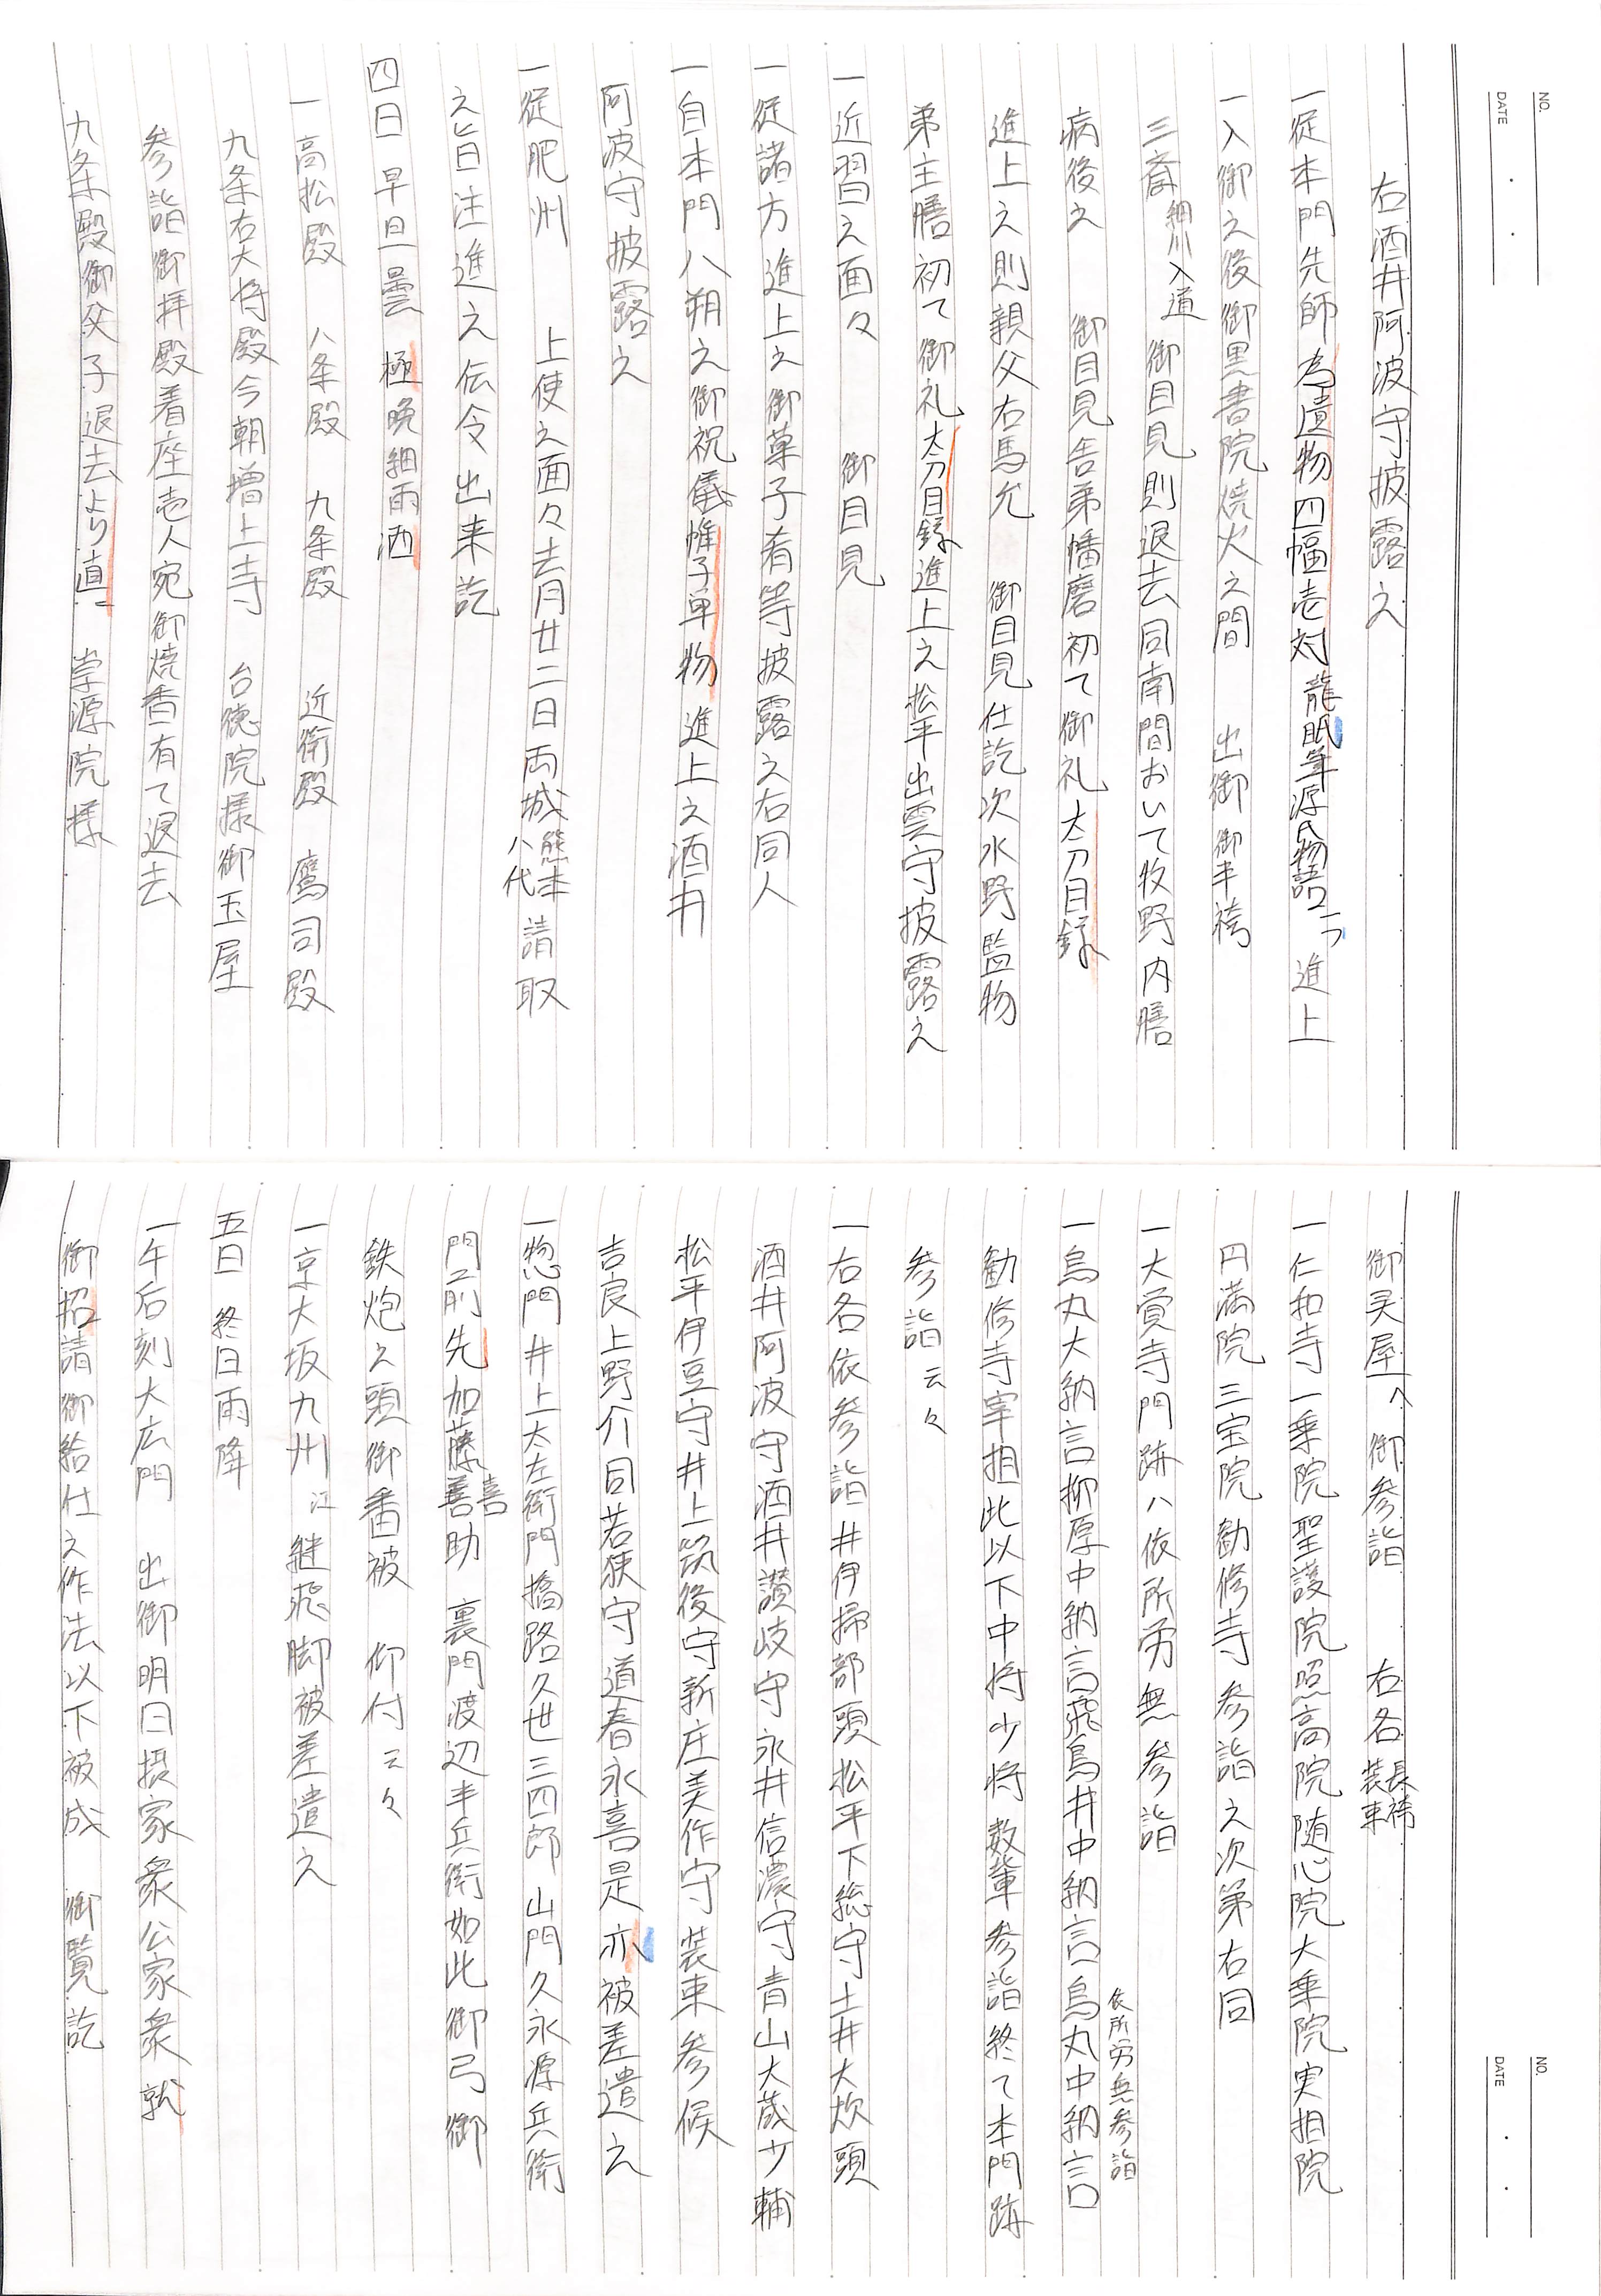 NO.
DATE
右酒井阿波守披露之
一従本門先師為遺物四幅壱対龍眠筆源氏物語一つ進上
一入御之後御黒書院焼火之間 出御御半袴
三斎細川入道御目見則退去同南間おいて牧野内膳
病後之 御目見舎弟幡磨初て御礼太刀目録
進上之則親父右馬允 御目見仕訖次水野監物
弟主膳初て御礼太刀目録進上之松平出雲守披露之
一近習之面々 御目見
一従諸方進上之御菓子肴等披露之右同人
一自本門八朔之御祝儀帷子単物進上之酒井
阿波守披露之
一従肥州 上使之面々去月廿二日両城熊本八代請取
之旨注進之伝令出来訖
四日 早旦曇 極晩細雨洒
一高松殿 八条殿 九条殿 近衛殿 鷹司殿
九条右大将殿今朝増上寺 台徳院様御玉屋
参詣御拝殿着座壱人宛御焼香有て退去
九条殿御父子退去より直ニ 崇源院様
NO.
DATE
御灵屋へ 御参詣 右各長袴装束
一仁和寺一乗院聖護院照高院随心院大乗院実相院
円満院三宝院勧修寺参詣之次第右同
一大覚寺門跡ハ依所労無参詣
一烏丸大納言柳原中納言飛鳥井中納言烏丸中納言依所労無参詣
勧修寺宰相此以下中将少将数輩参詣終て本門跡
参詣云々
一右各依参詣井伊掃部頭松平下総守土井大炊頭
酒井阿波守酒井讃岐守永井信濃守青山大蔵少輔
松平伊豆守井上筑後守新庄美作守装束参候
吉良上野介同若狭守道春永喜是亦被差遣之
一惣門井上太左衛門橋路久世三四郎山門久永源兵衛
門前先加藤善喜助裏門渡辺半兵衛如此御弓御
鉄炮之頭御番被 仰付云々
一京大坂九州江継飛脚被差遣之
五日 終日雨降
一午后刻大広門 出御明日摂家衆公家衆就
御招請御給仕之作法以下被成 御覧訖